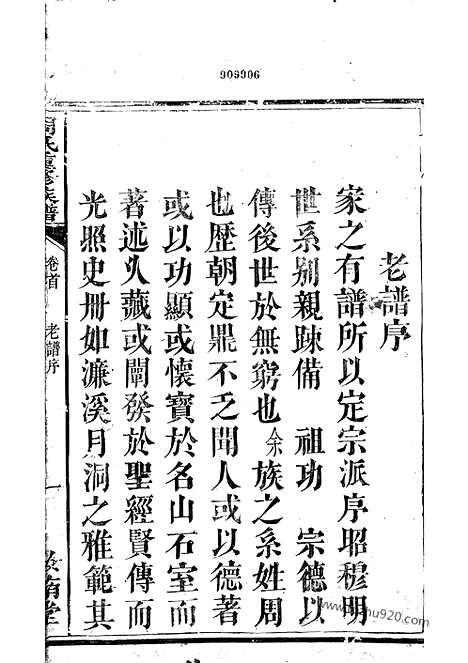 909906
老譜序
家之有譜所以定宗派序昭穆明
世系别親踈備 祖功 宗德以
傳後世於無窮也余族之系姓周
也歷朝定鼎不乏聞人或以德著
或以功顯或懷寶於名山石室而
著述乆藏或闡發於聖經賢傳而
光照史冊如濂溪月洞之雅範其
氏 修族譜
卷首
老譜序
一
堂